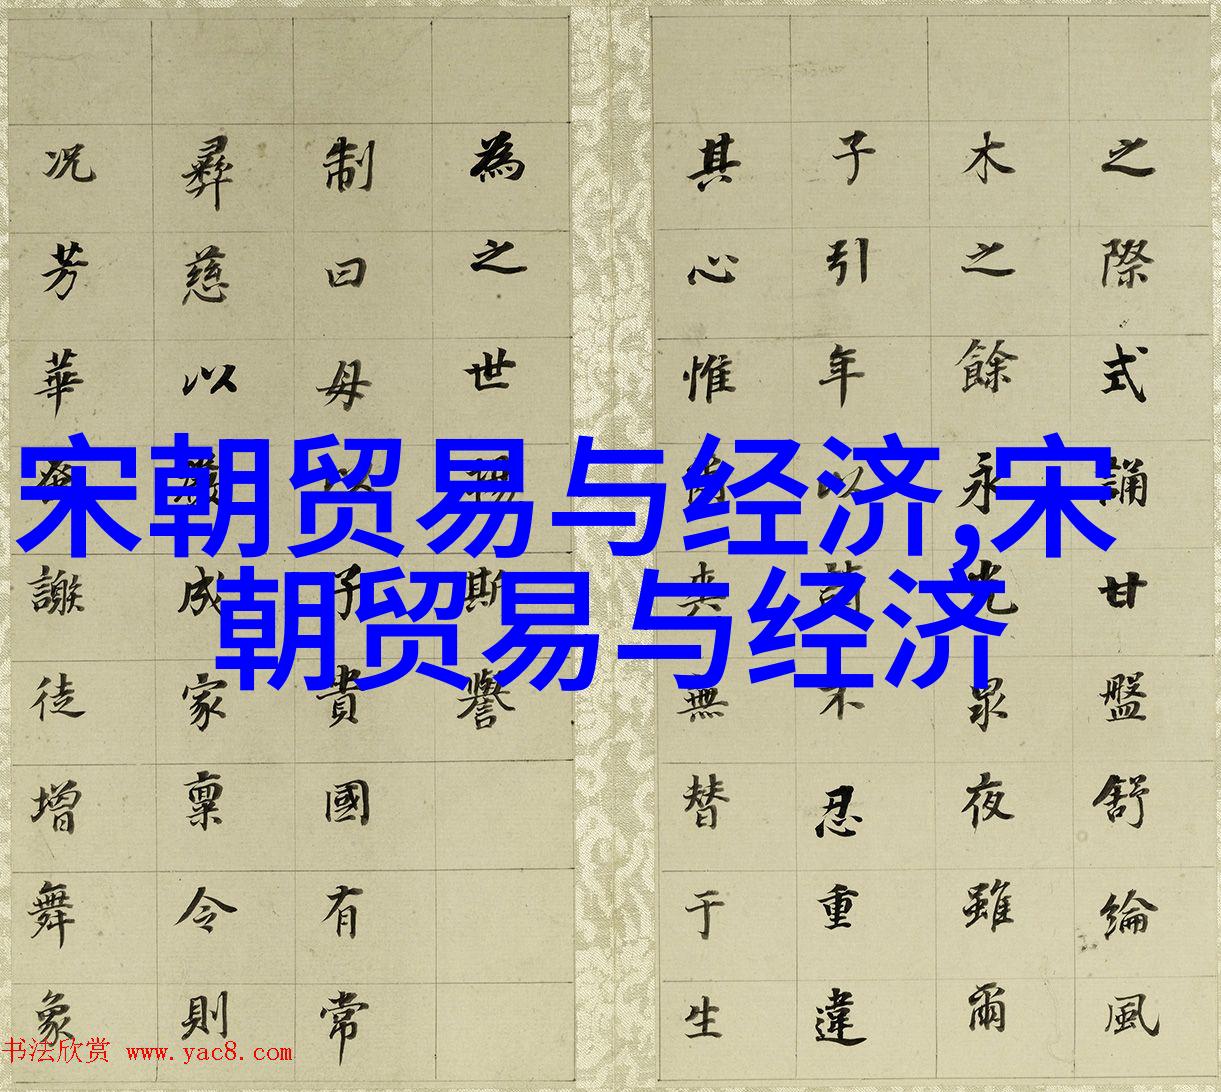 宋朝贸易与经济,宋
朝贸易与经济
之際式誦甘盤舒綸風
木之餘永光泉夜雖爾
子引年以不忍重違
其心惟尚無替于生
為之世斯譽
制曰母以子貴國有常
彝慈以嚴成家稟令則
況芳華謝徒增舞象
书法欣赏 www.yac8.com